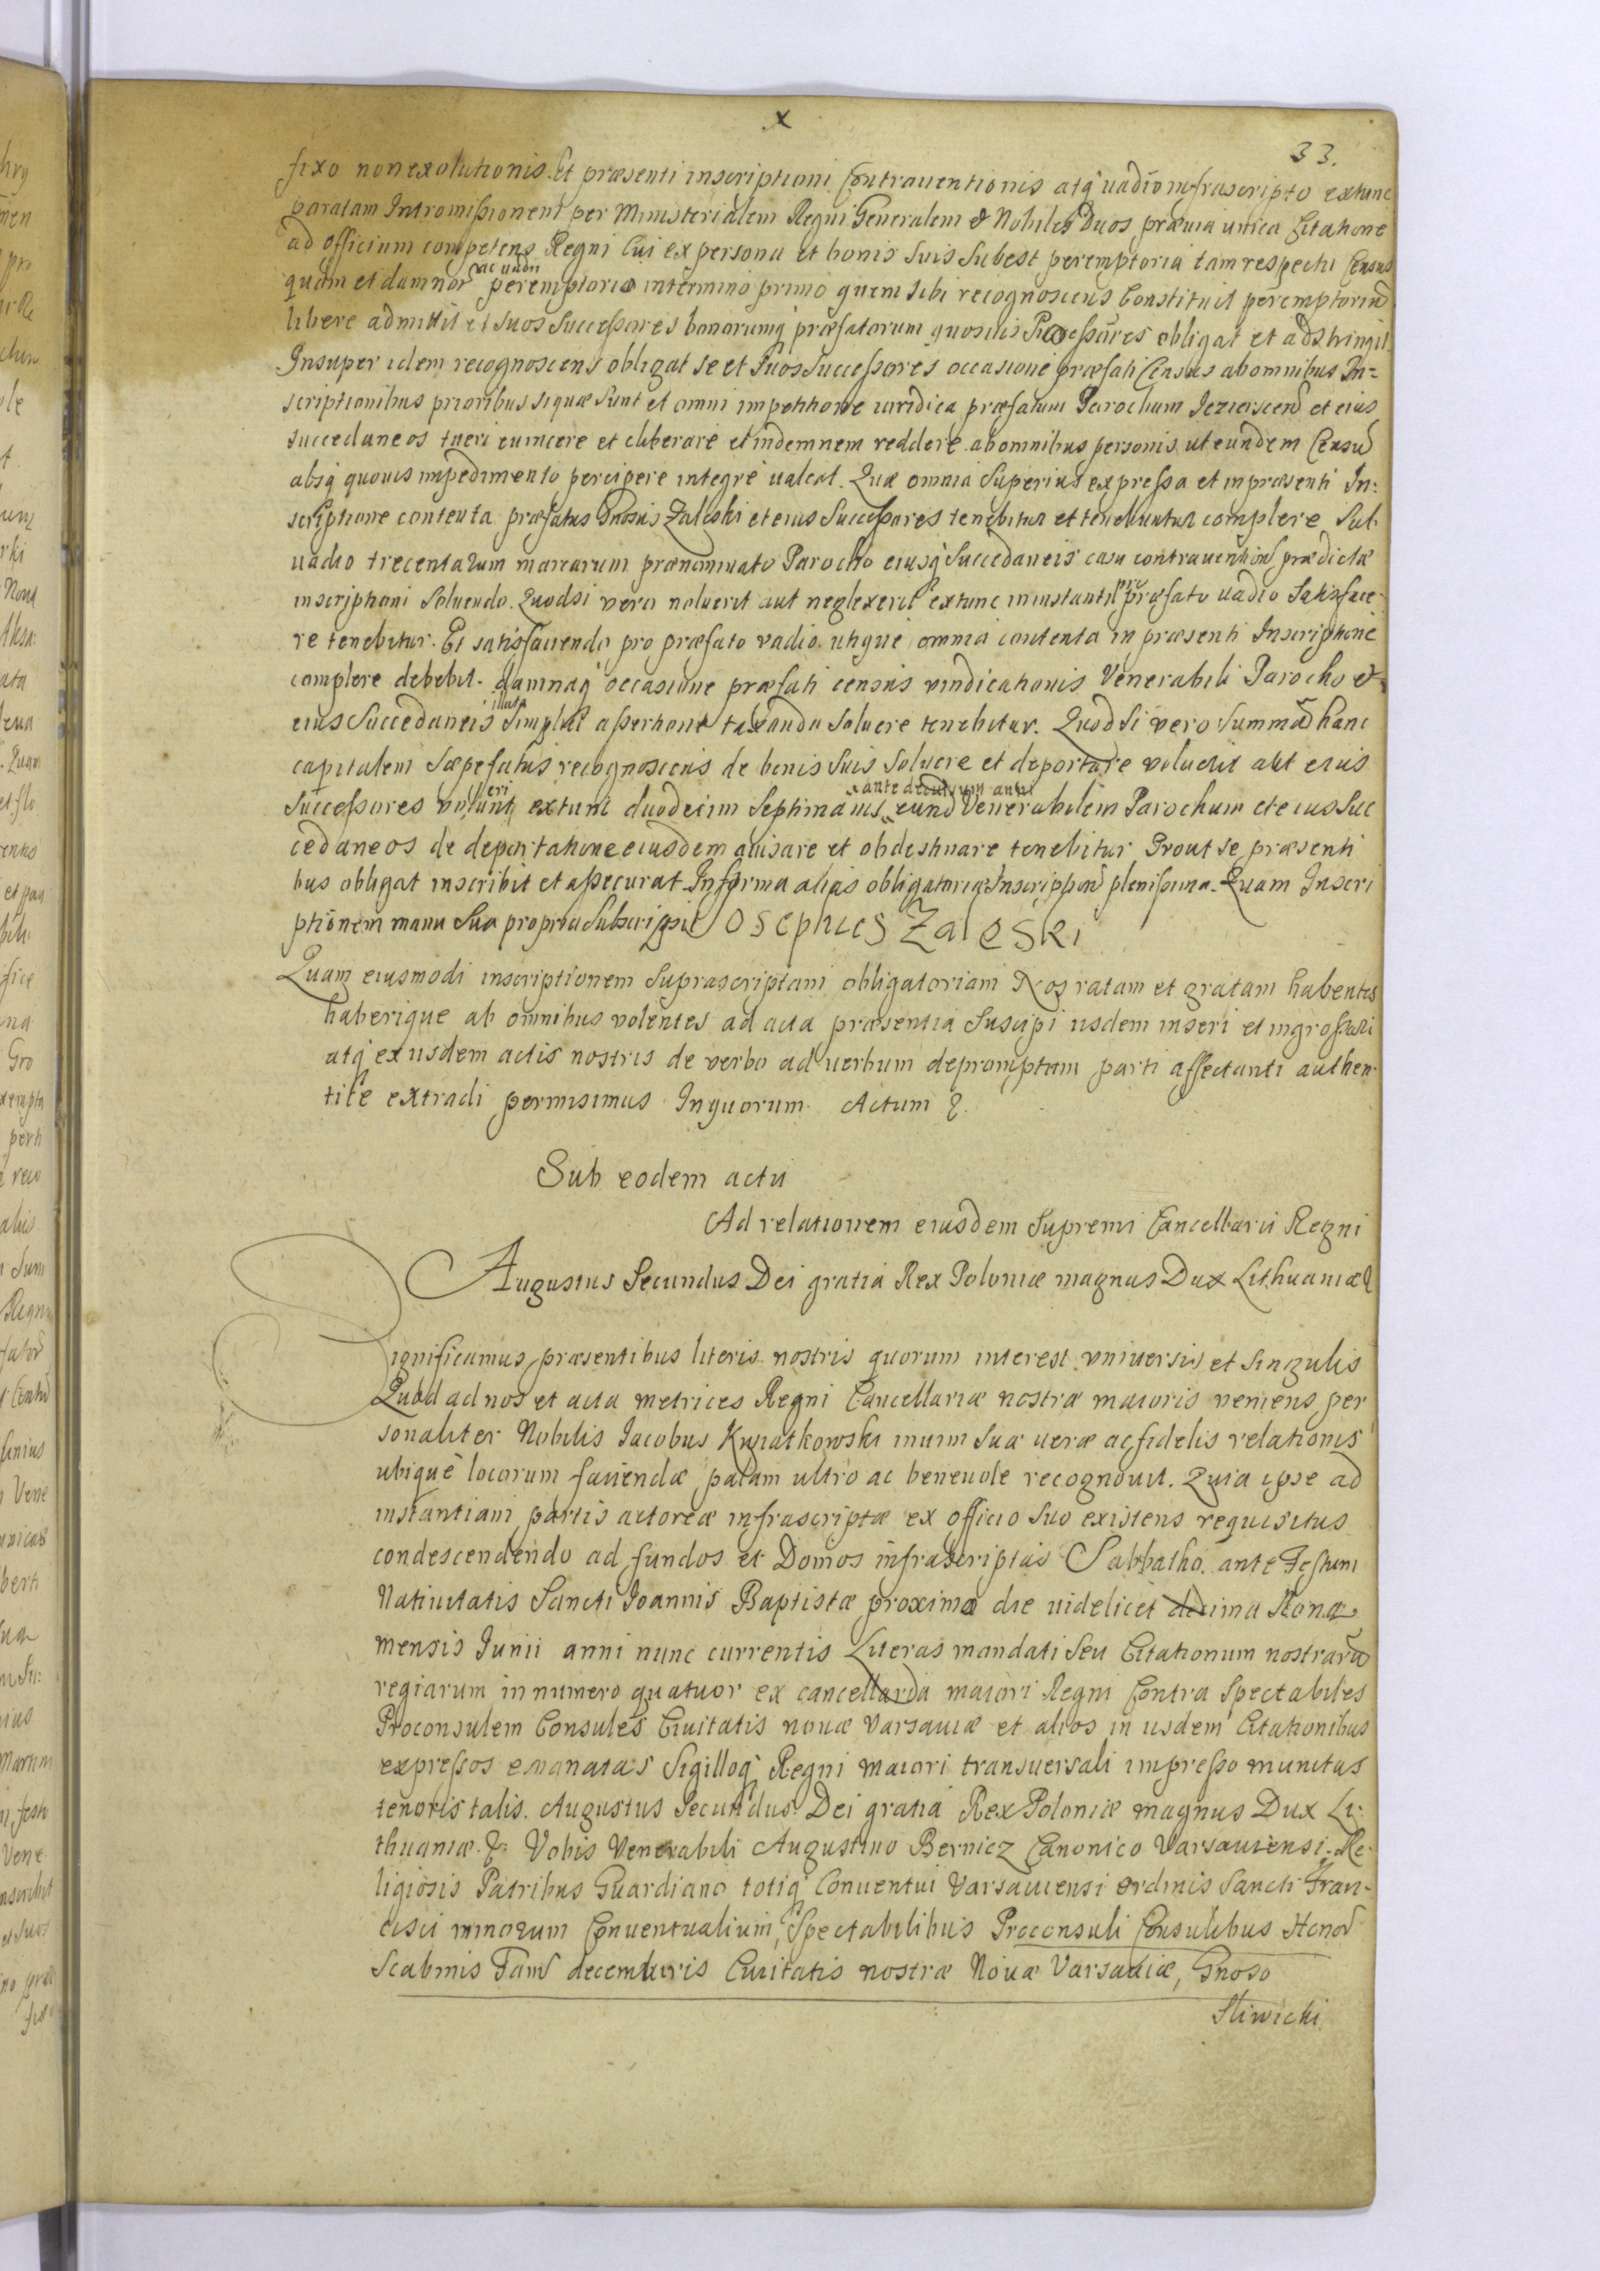 x
33.
fixo nonexolutionis. Et præsenti inscriptioni Contrauentionis atq́ uadio infrascripto extunc
paratam Intromißionem per Ministerialem Regni Generalem & Nobiles Duos præuia unica Citatione
ad officium competens Regni Cui ex persona et bonis Suis Subest peremptoria tam respectu Census
quam et damnor ac uadii peremptorie intermino primo quem sibi recognoscens Constituit peremptoriũ
libere admittit et Suos Succeßores bonorumq́ præfatorum quosuis Poßeßores obligat et adstringit.
Insuper idem recognoscens obligat se et Suos Succeßores occasione præfati Census ab omnibus In=
scriptionibus prioribus siquæ Sunt et omni impetitione iuridica præfatum Parochum et eius
succedaneos tueri euincere et eliberare et indemnem reddere ab omnibus personis ut eundem Censũ
absq́ quouis impedimento percipere integrè ualeat. Quæ omnia Superius expreßa et in præsenti In=
scriptione contenta præfatus Gnosus Zaleski et eius Succeßores tenebitur et tenebuntur complere Sub
uadio trecentarum marcarum prænominato Parocho eiusq́ Succedaneis casu contrauention prædictæ
inscriptioni Soluendo. Quodsi vero noluerit aut neglexerit extunc in instanti pro præfato uadio Satisface-
re tenebitur. Et satisfaciendo pro præfato vadio utique omnia contenta in præsenti Inscriptione
complere debebit. damnaq́ occasione præfati census vindicationis Venerabili Parocho &
eius Succedaneis illata Simplici aßertione taxanda Soluere tenebitur. Quod Si vero Summã hanc
capitalem Sæpefatus recognoscens de bonis Suis Soluere et deportare voluerit aut eius
Succeßores voluerint extunc duodecim Septimanis ante decursum anni eund Venerabilem Parochum et eius Suc
cedaneos de deportatione eiusdem auisare et obdestinare tenebitur Prout se præsenti
bus obligat inscribit et aßecurat In forma alias obligatoriæ Inscription plenißima. Quam Inscri
ptionem manu Sua propria Subscripsit Josephus Zaleski
Quam eiusmodi inscriptionem Suprascriptam obligatoriam Nos ratam et gratam habentes
haberique ab omnibus volentes ad acta præsentia Suscipi iisdem inseri et ingroßari
atq́ ex iisdem actis nostris de verbo ad uerbum depromptam parti affectanti authen
tice extradi permisimus Inquorum Actum &.
Sub eodem actu
Ad relationem eiusdem Supremi Cancellarii Regni
Augustus Secundus Dei gratia Rex Poloniæ magnus Dux Lithuaniæ &
Significamus præsentibus literis nostris quorum interest vniuersis et Singulis
Quod ad nos et acta metrices Regni Cancellariæ nostræ maioris veniens per
sonaliter Nobilis Iacobus Kwiatkowski inuim Suæ ueræ ac fidelis relationis
ubiquè locorum faciendæ palam ultro ac beneuole recognouit. Quia ipse ad
instantiam partis actoreæ infrascriptæ ex officio Suo existens requisitus
condescendendo ad fundos et Domos infrascriptas Sabbatho ante Festum
Natiuitatis Sancti Ioannis Baptistæ proximo die uidelicet decima Nona
mensis Iunii anni nunc currentis Literas mandati Seu Citationum nostrarũ
regiarum in numero quatuor ex cancellaria maiori Regni Contra Spectabiles
Proconsulem Consules Ciuitatis nouæ Varsauiæ et alios in iisdem Citationibus
expreßos emanatas Sigilloq́ Regni maiori transuersali impreßo munitas
tenoris talis. Augustus Secundus Dei gratia Rex Poloniæ magnus Dux Li-
thuaniæ &. Vobis Venerabili Augustino Bernicz Canonico Varsauiensi. Re-
ligiosis Patribus Guardiano totiq́ Conuentui Varsauiensi ordinis Sancti Fran-
cisci minorum Conuentualium, Spectabilibus Proconsuli Consulibus Honor
Scabinis Fam decemuiris Ciuitatis nostræ Nouæ Varsauiæ, Gnoso
Sliwicki